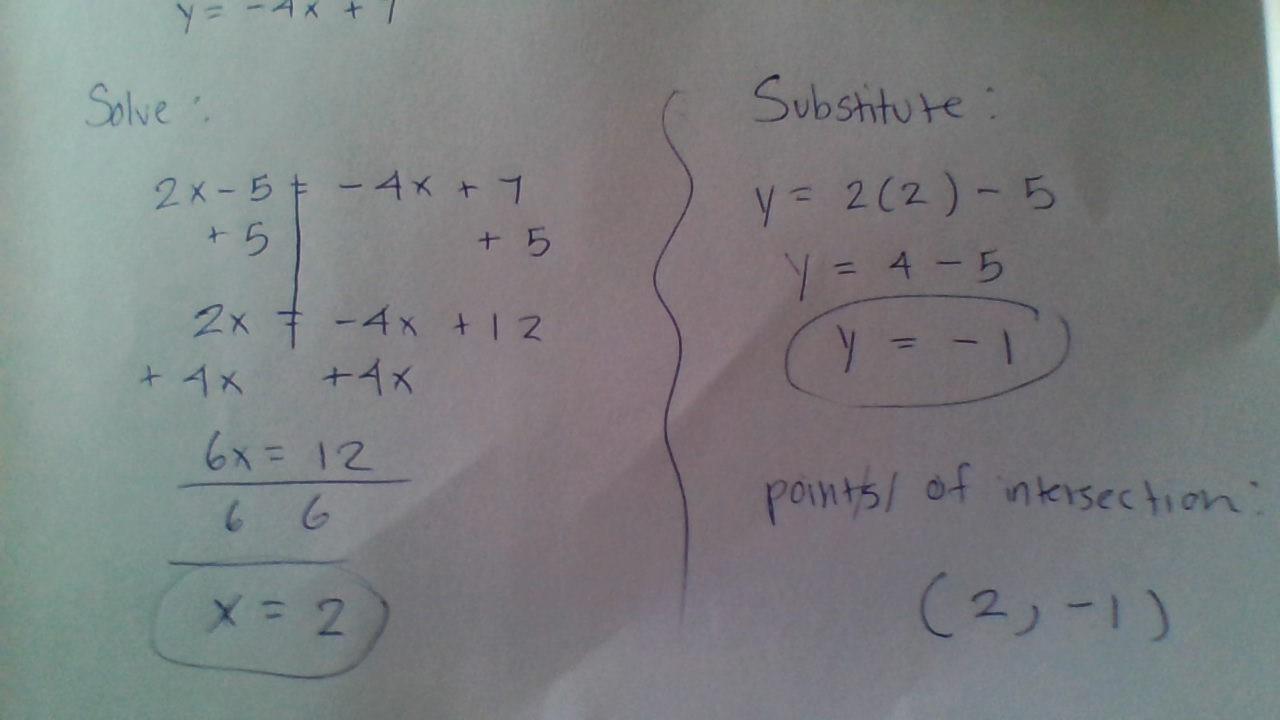 y = -4x + 7
Solve:
2x - 5 = -4x + 7
+ 5 + 5
2x = -4x + 12
+ 4x +4x
6x = 12
6 6
x = 2
Substitute:
y = 2(2) - 5
y = 4 - 5
y = -1
point/s/ of intersection:
(2, -1)